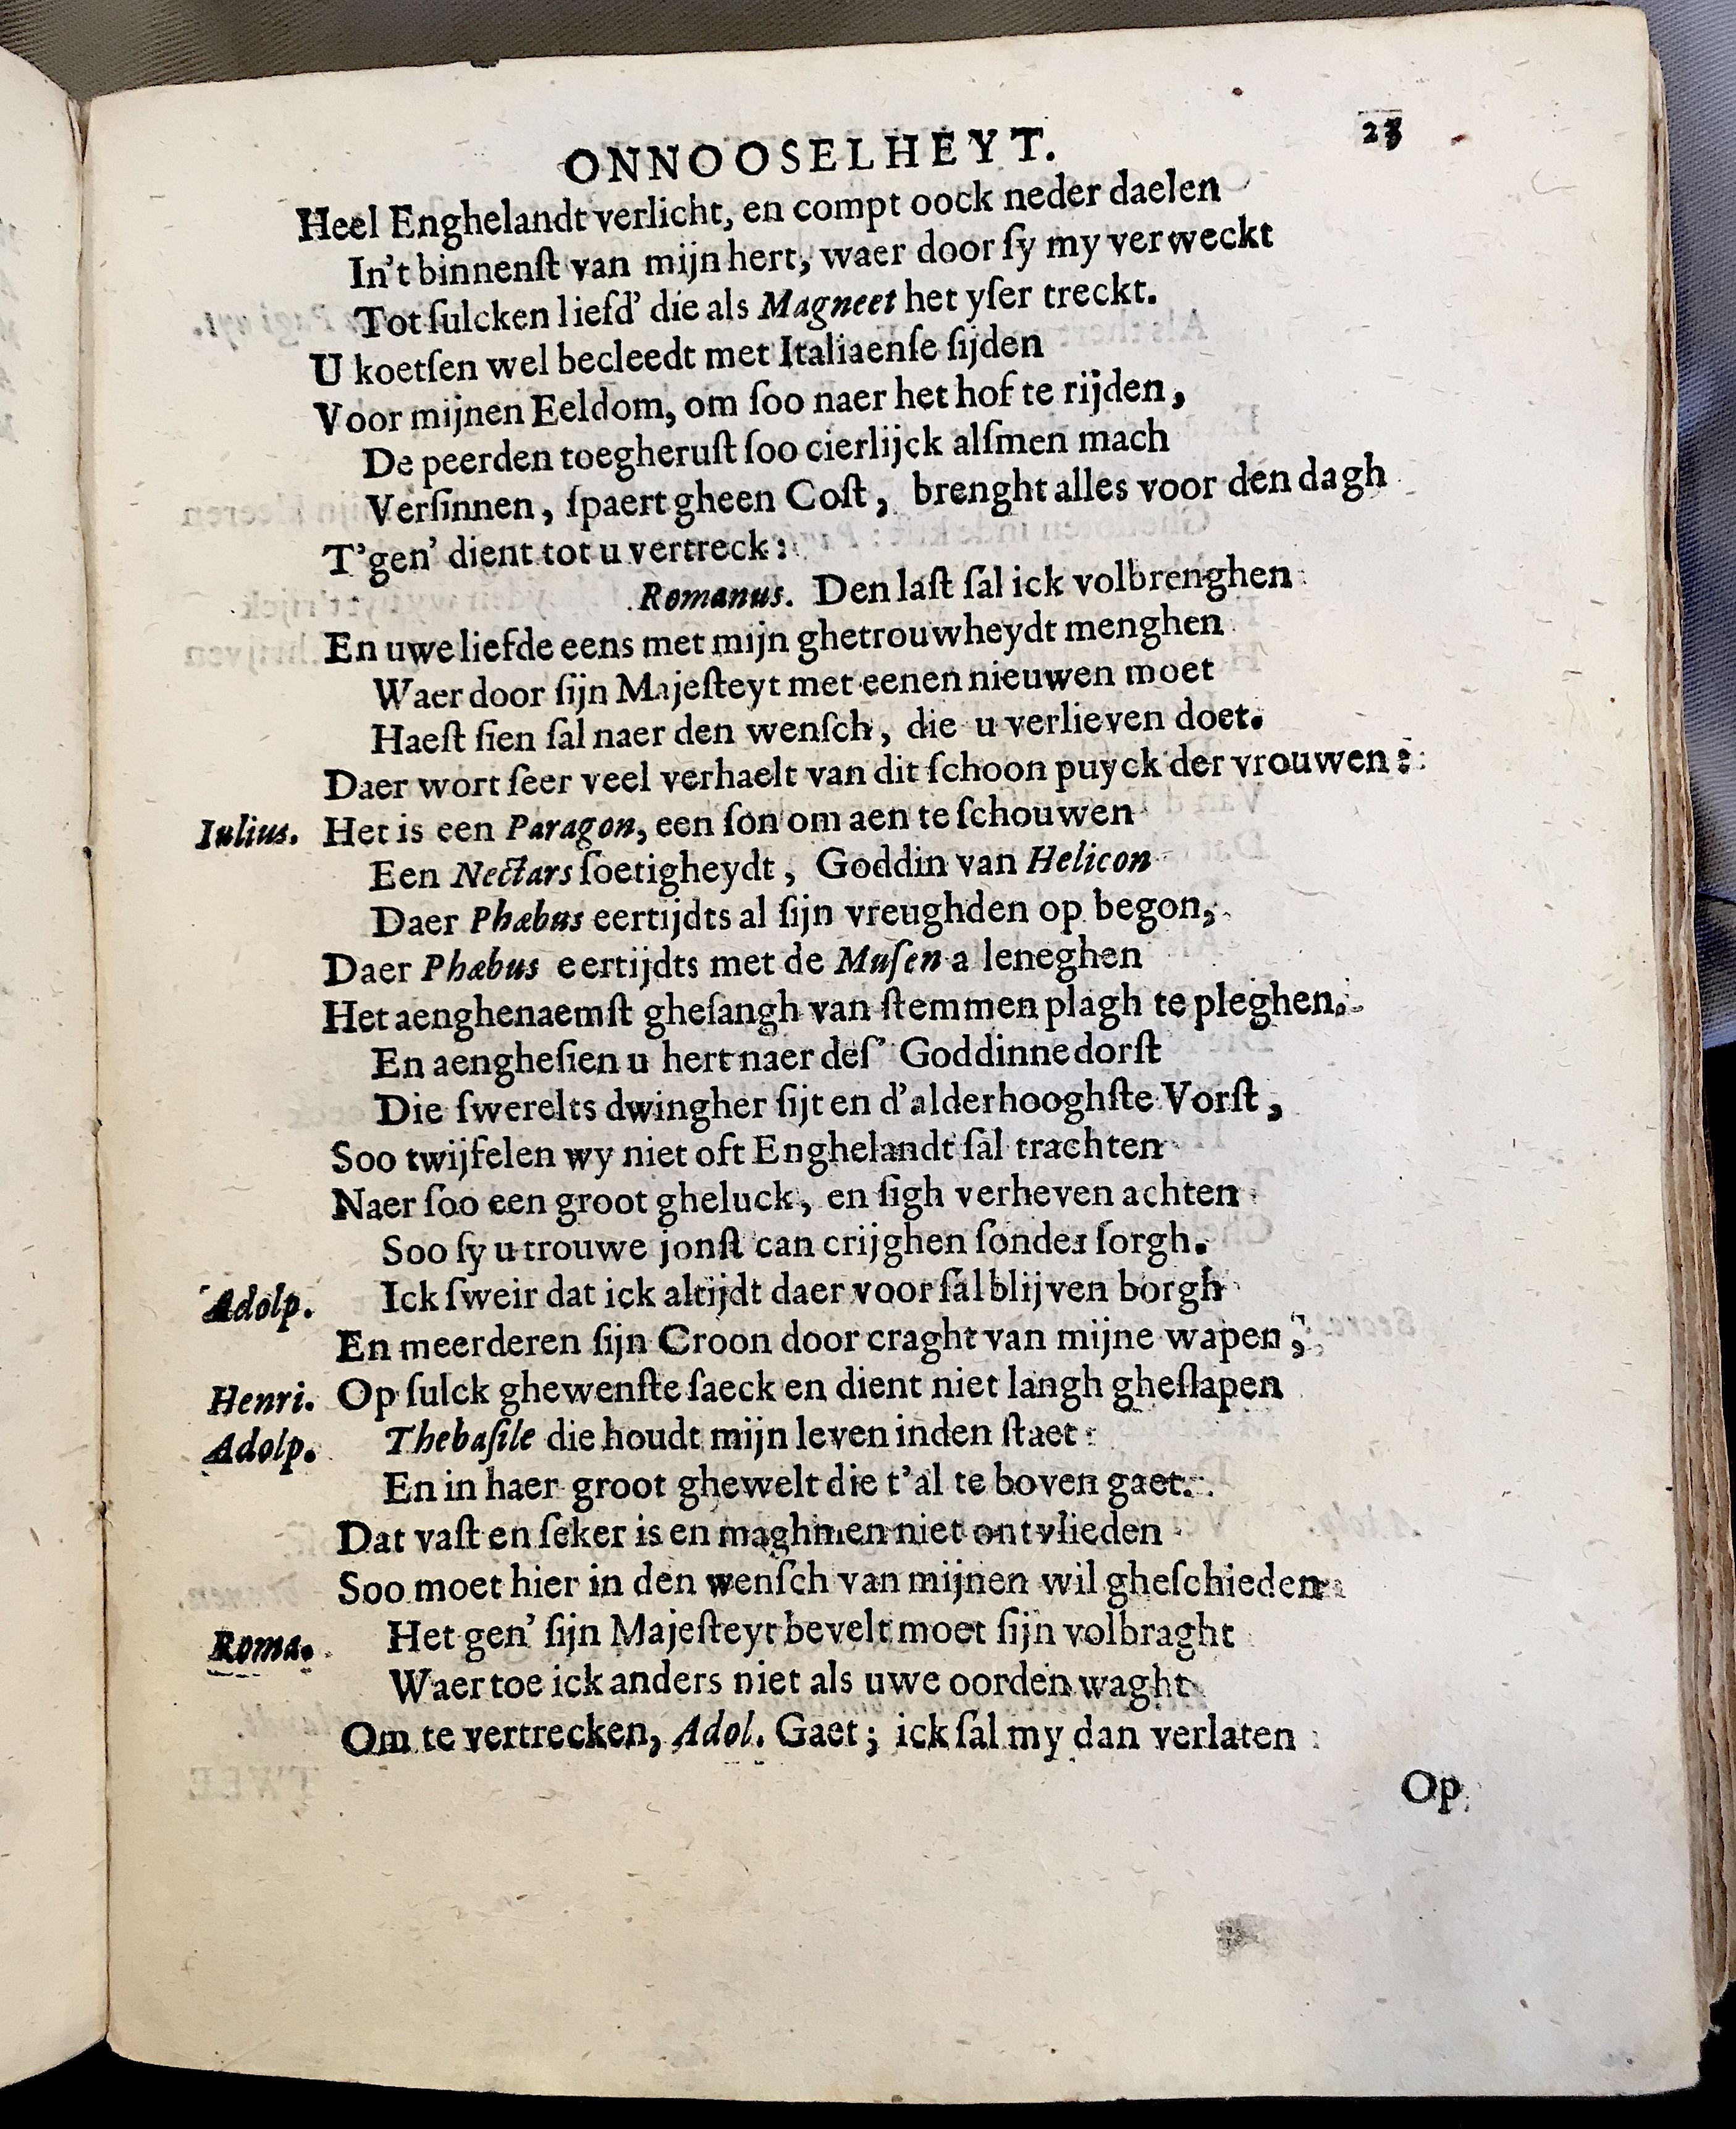 ONNOOSELHEYT. 23
Heel Enghelandt verlicht, en compt oock neder daelen
In't binnenſt van mijn hert, waer door ſy my verweckt
Tot ſulcken liefd' die als Magneet het yſer treckt.
U koetſen wel becleedt met Italiaenſe ſijden
Voor mijnen Eeldom, om ſoo naer het hof te rijden,
De peerden toegheruſt ſoo cierlijck alſmen mach
Verſinnen, ſpaert gheen Coſt, brenght alles voor den dagh
T'gen' dient tot u vertreck:
Romanus. Den laſt ſal ick volbrenghen
En uwe liefde eens met mijn ghetrouwheydt menghen
Waer door ſijn Majeſteyt met eenen nieuwen moet
Haeſt ſien ſal naer den wenſch, die u verlieven doet.
Daer wort ſeer veel verhaelt van dit ſchoon puyck der vrouwen:
Iulius. Het is een Paragon, een ſon om aen te ſchouwen
Een Nectars ſoetigheydt, Goddin van Helicon
Daer Phæbus eertijdts al ſijn vreughden op begon,
Daer Phæbus eertijdts met de Muſen a leneghen
Het aenghenaemſt gheſangh van ſtemmen plagh te pleghen.
En aengheſien u hert naer deſ' Goddinne dorſt
Die ſwerelts dwingher ſijt en d'alderhooghſte Vorſt,
Soo twijfelen wy niet oft Enghelandt ſal trachten
Naer ſoo een groot gheluck, en ſigh verheven achten
Soo ſy u trouwe jonſt can crijghen ſonder ſorgh.
Adolp. Ick ſweir dat ick altijdt daer voor ſal blijven borgh
En meerderen ſijn Croon door craght van mijne wapen,
Henri. Op ſulck ghewenſte ſaeck en dient niet langh gheſlapen
Adolp. Thebaſile die houdt mijn leven inden ſtaet:
En in haer groot ghewelt die t'al te boven gaet.
Dat vaſt en ſeker is en maghmen niet ontvlieden
Soo moet hier in den wenſch van mijnen wil gheſchieden
Roma. Het gen' ſijn Majeſteyt bevelt moet ſijn volbraght
Waer toe ick anders niet als uwe oorden waght
Om te vertrecken, Adol. Gaet; ick ſal my dan verlaten
Op